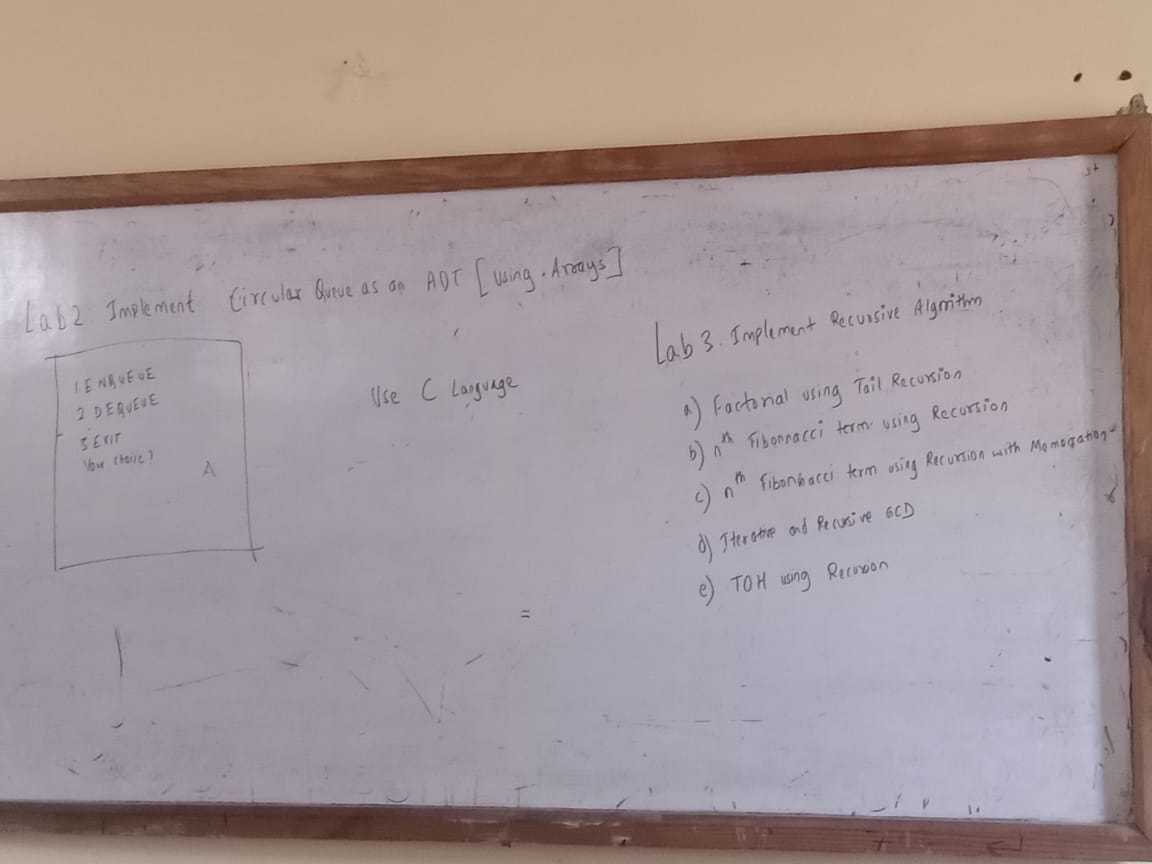 Lab 2 Implement Circular Queue as an ADT [using Arrays]
1 ENQUEUE
2 DEQUEUE
3 EXIT
Your choice?
A
Use C Language
Lab 3. Implement Recursive Algorithm
a) Factorial using Tail Recursion
b) nth Fibonnacci term using Recursion
c) nth Fibonnacci term using Recursion with
d) Iterative and Recursive GCD
e) TOH using Recursion